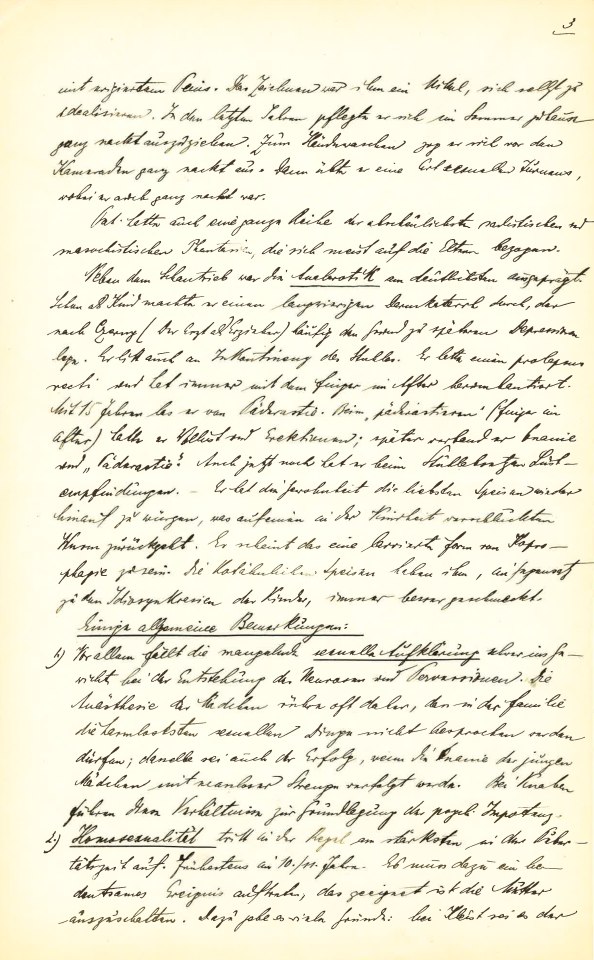 3
mit erigiertem Penis. Das Zeichnen war ihm ein Mittel, sich selbst zu
idealisieren. In den letzten Jahren pflegte er sich im Sommer zuhause
ganz nackt auszuziehen. Zum Händewaschen zog er sich vor den
Kameraden ganz nackt aus. Dann übte er eine Art sexuellen Turnens,
wobei er auch ganz nackt war.
Pat. hatte auch eine ganze Reihe der abscheulichsten sadistischen und
masochistischen Phantasien, die sich meist auf die Eltern bezogen.
Neben dem Schautrieb war die Analerotik am deutlichsten ausgeprägt.
Schon als Kind machte er einen langwierigen Darmkatarrh durch, der
nach Czerny (Der Arzt als Erzieher) häufig den Grund zu späteren Depressionen
lege. Er litt auch an Inkontinenz des Stuhles. Er hatte einen prolapsus
recti und hat immer mit dem Finger im After herumhantiert.
Mit 15 Jahren las er von Päderastie. Beim "päderastieren" (Finger im
After) hatte er Wollust und Erektionen; später verband er Onanie
und "Päderastie". Auch jetzt noch hat er beim Stuhlabsetzen Lust-
empfindungen. – Er hat die Gewohnheit die liebsten Speisen wieder
hinauf zu würgen, was auf einen in der Kindheit verschluckten
Wurm zurückgeht. Es scheint das eine larvierte Form von Kopro-
phagie zu sein. Die kotähnlichen Speisen haben ihm, im Gegensatz
zu den Idiosynkrasien der Kinder, immer besser geschmeckt.
Einige allgemeine Bemerkungen:
1.) Vor allem fällt die mangelnde sexuelle Aufklärung schwer ins Ge-
wicht bei der Entstehung der Neurosen und Perversionen. Die
Anästhesie der Mädchen rühre oft daher, dass in der Familie
die harmlosesten sexuellen Dinge nicht besprochen werden
dürfen; dasselbe sei auch der Erfolg, wenn die Onanie der jungen
Mädchen mit Strenge verfolgt werde. Bei Knaben
führen diese Verhältnisse zur Grundlegung der psych. Impotenz.
2.) Homosexualität tritt in der Regel am stärksten in der Puber-
tätszeit auf. Frühestens im 10./11. Jahre. Es muss dazu ein be-
deutsames Ereignis auftreten, das geeignet ist die Mutter
auszuschalten. Dazu gebe es viele Gründe: bei Kleist sei es der